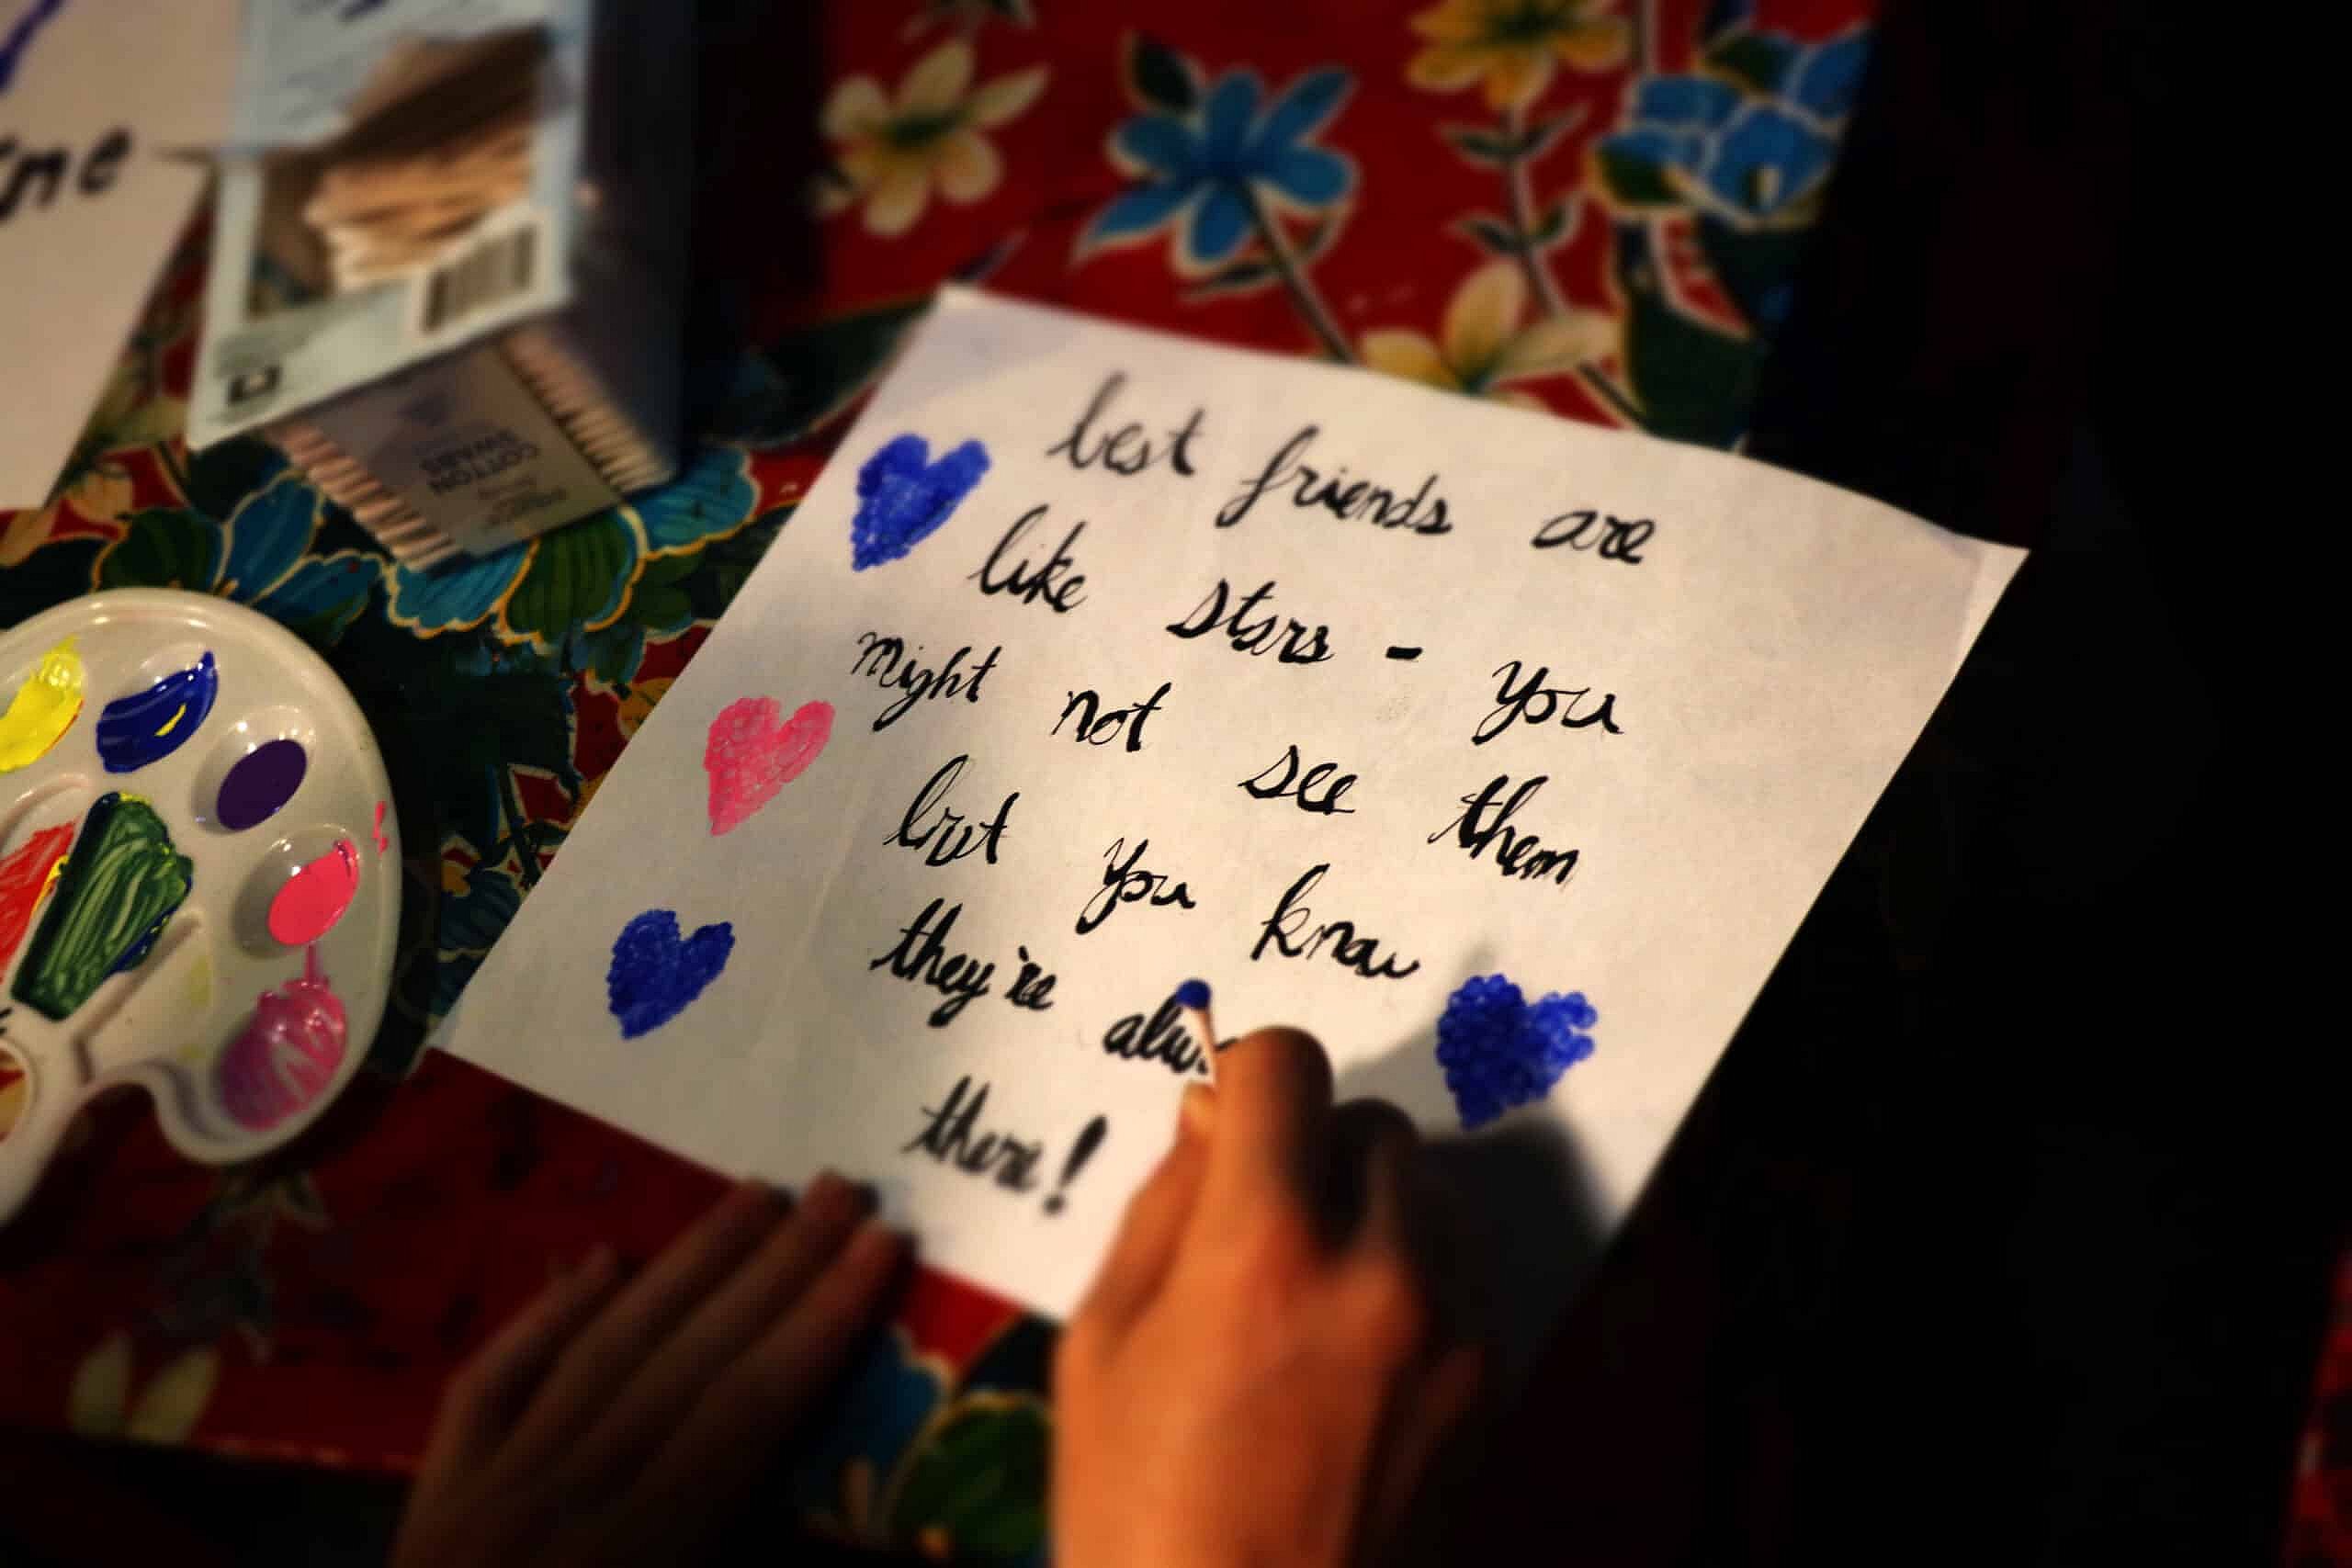 best friends are
like stars - you
might not see them
but you know
they're alw
there!
COTTON
SWABS
me